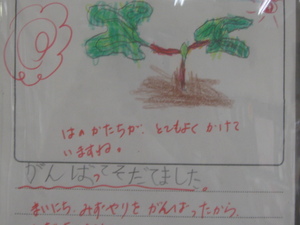 はのかたちが、とてもよくかけて
いますね。
がんばってそだてました。
まいにち、みずやりをがんばったから